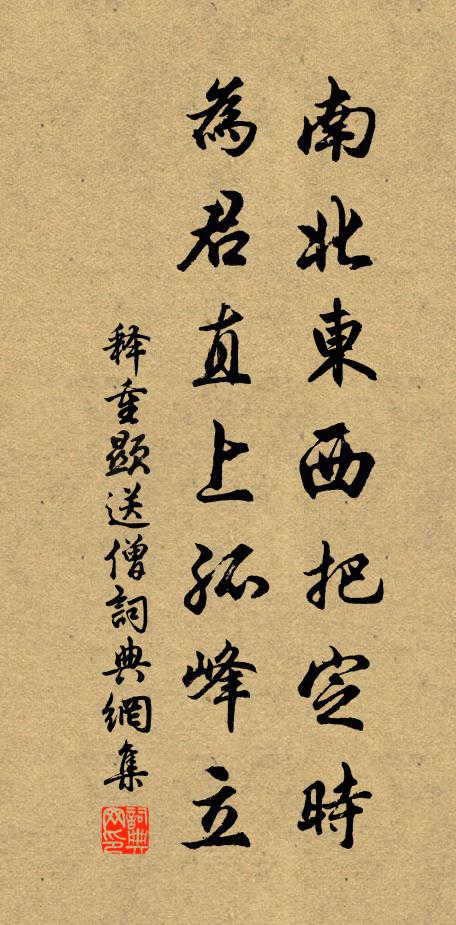 南北東西把定時
為君直上孤峰立
释重顯送僧詞典網集
詞典网印